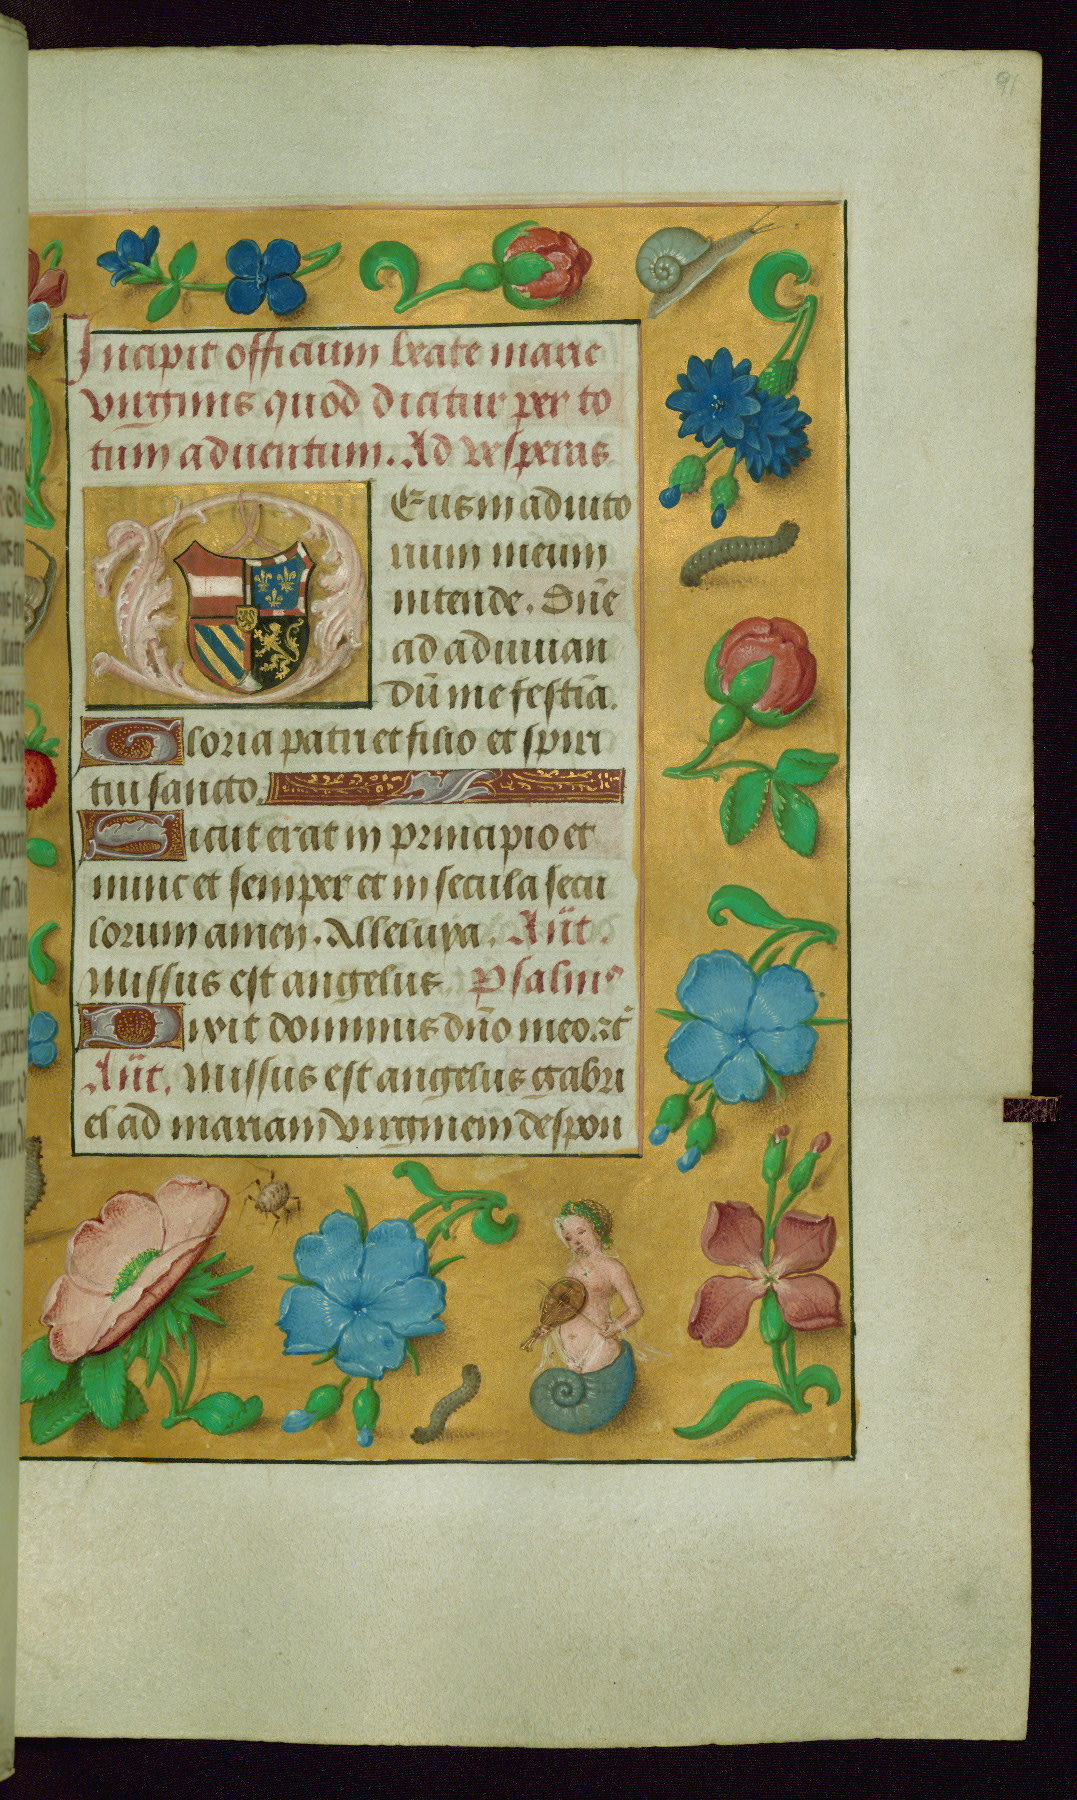 91
Incipit officium beate marie
virginis quod dicitur per to
tum aduentum. Ad vesperas
Eus in adiuto
rium meum
intende. Dñe
ad adiuuan
dũ me festiã.
Gloria patri et filio et spiri
tui sancto.
Sicut erat in principio et
nunc et semper et in secula secu
lorum amen. Alleluya. Añt.
Missus est angelus. Psalmꝰ
Dixit dominus dño meo. ⁊c̃
Añt. Missus est angelus gabri
el ad mariam virginem despon